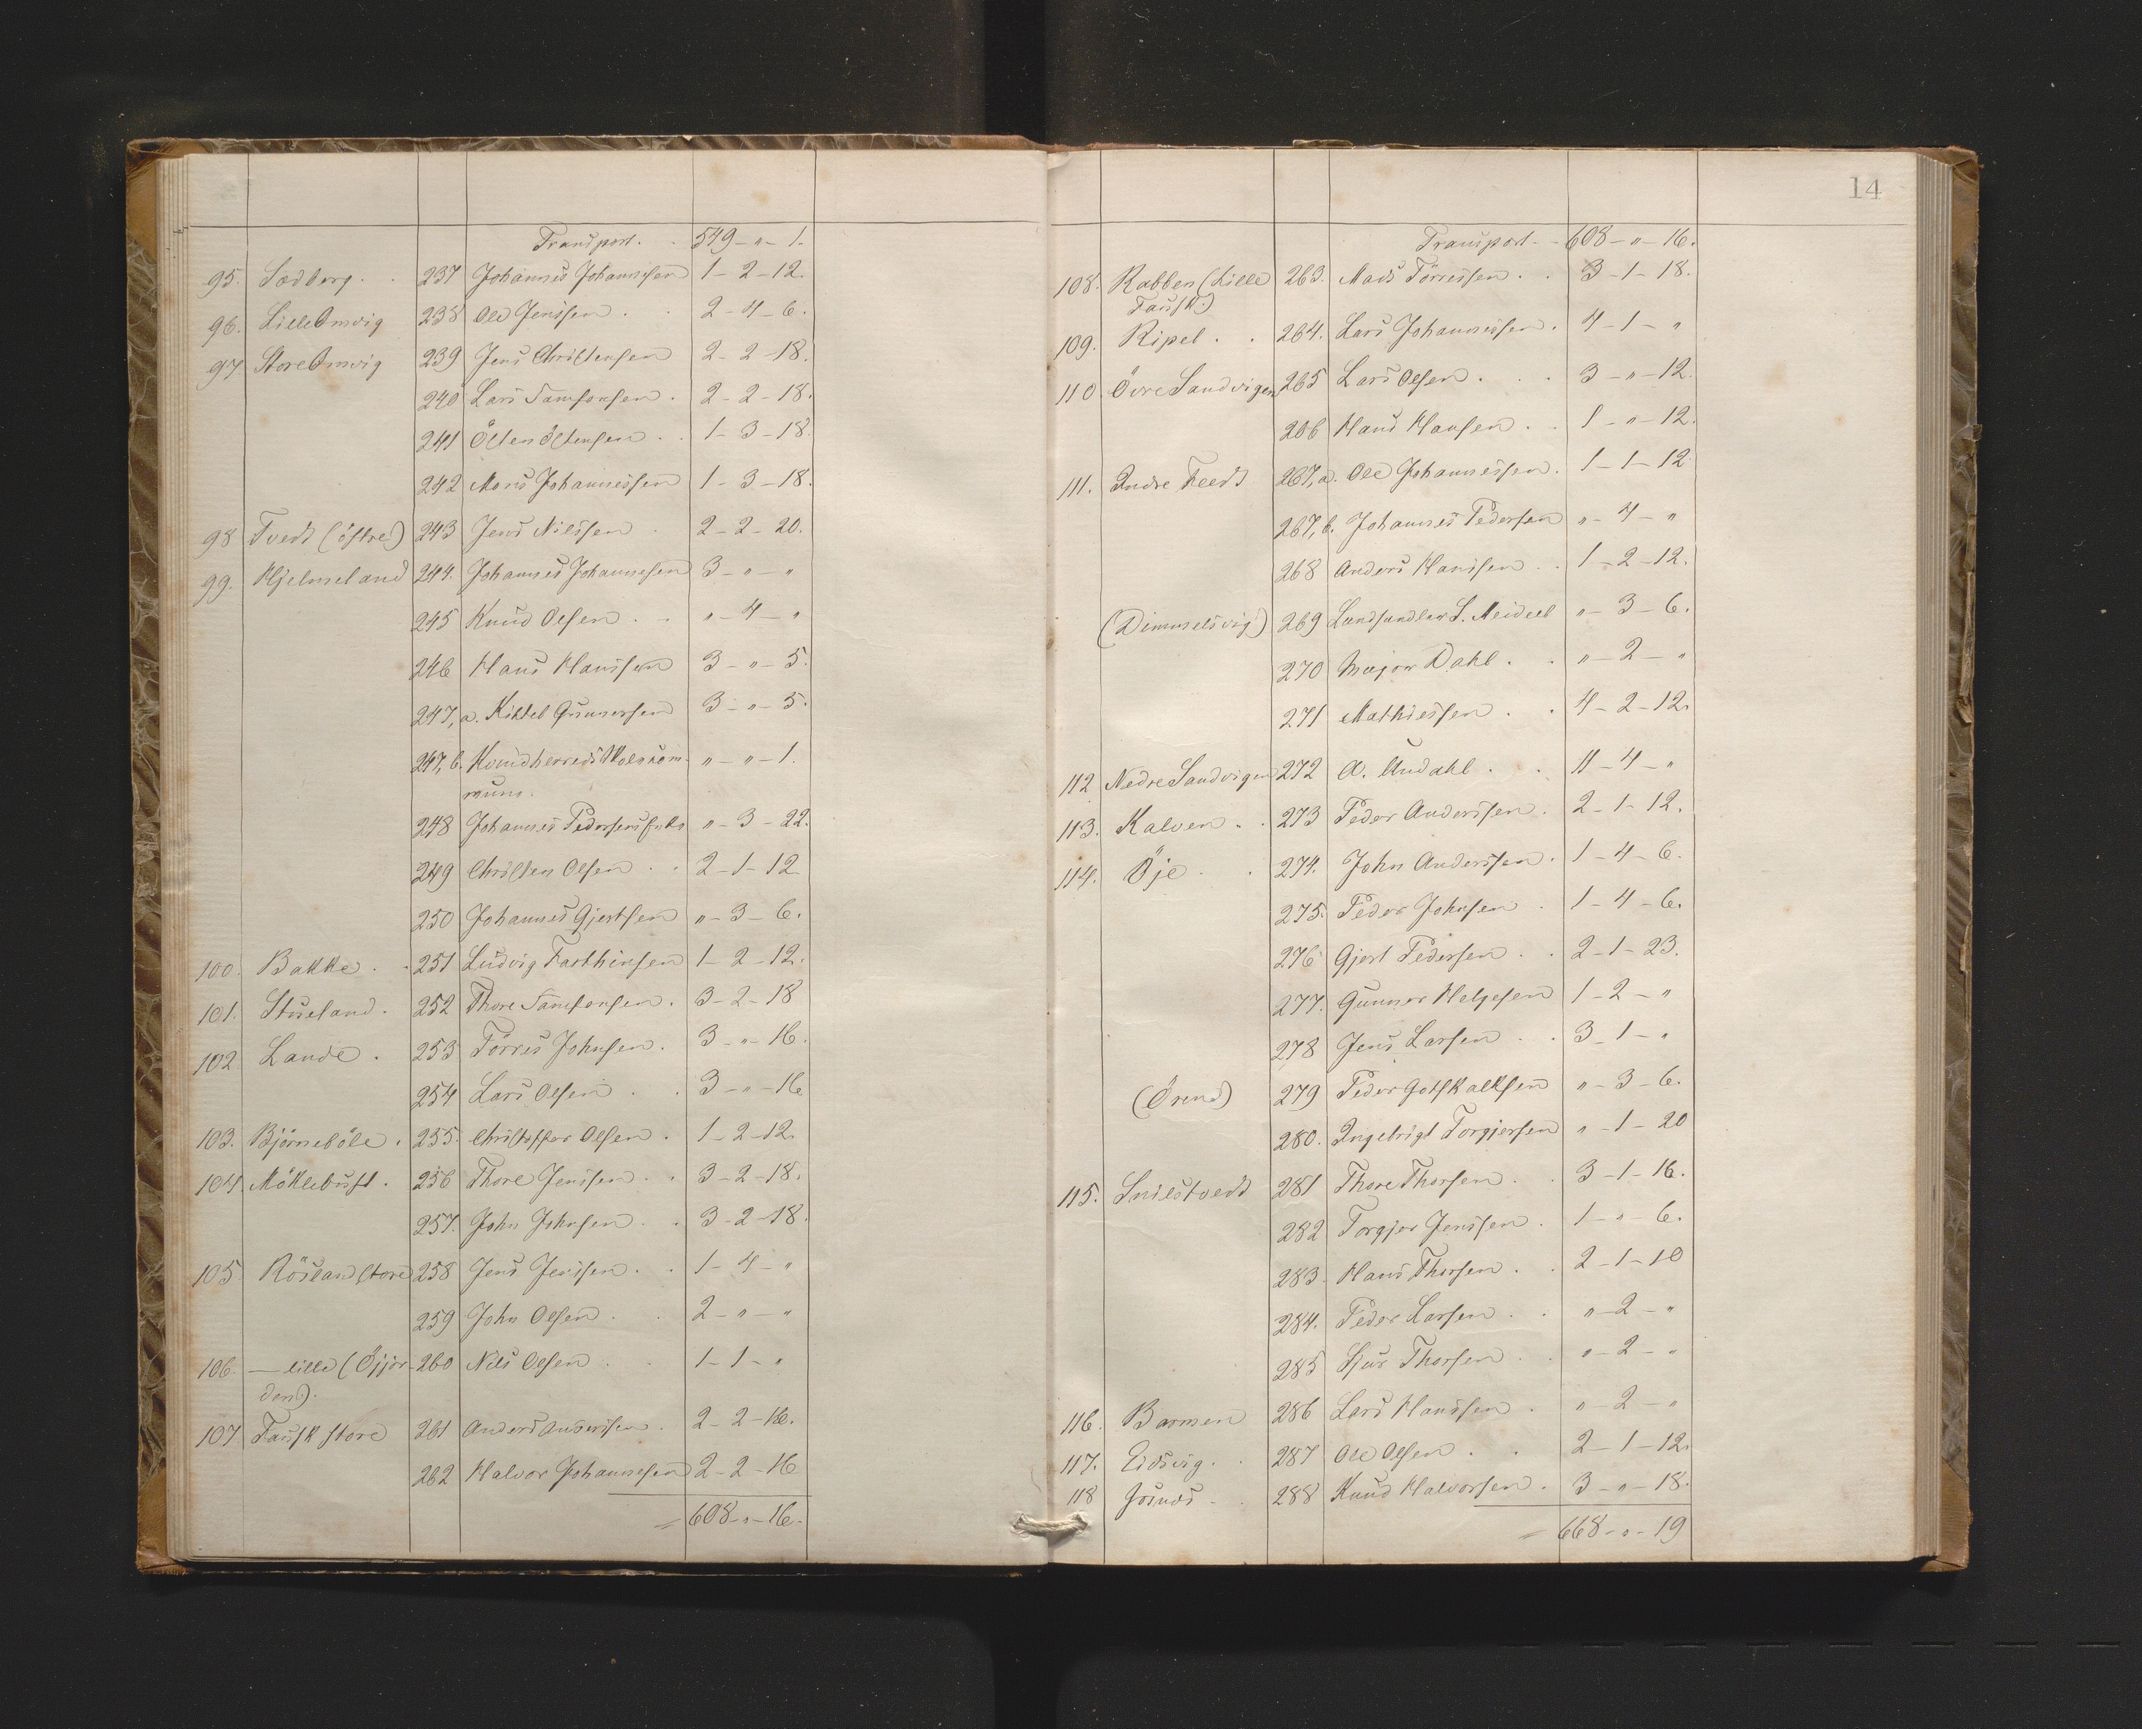 Transport. . 549 - " - 1.
95. Sædberg. . 237 Johannes Johannesen 1 - 2 - 12.
96. Lille Omvig 238 Ole Jenssen . . 2 - 4 - 6.
97 Store Omvig 239 Jens Christensen 2 - 2 - 18.
240 Lars Samsonsen . 2 - 2 - 18.
241 Östen Östensen . . 1 - 3 - 18.
242 Mons Johannessen 1 - 3 - 18.
98 Tvedt (östre) 243 Jens Nilssen . 2 - 2 - 20.
99. Hjelmeland 244. Johannes Johannesen 3 - " - "
245 Knud Olsen . . " - 4 - "
246 Hans Hanssen 3 - " - 5.
247, a. Kittel Gunnersen 3 - " - 5.
247, b. Kvindherreds Skolekom- " - " - 1.
mune.
248 Johannes Pedersens Enke " - 3 - 22.
249 Christen Olsen . . 2 - 1 - 12
250 Johannes Gjertsen " - 3 - 6.
100. Bakke . . 251 Ludvig Farthinsen 1 - 2 - 12.
101. Stueland . 252 Thore Samsonsen . 3 - 2 - 18
102. Lande . 253 Törres Johnsen . 3 - " - 16.
254 Lars Olsen . . 3 - " - 16
103. Björneböle . 255. Christopher Olsen . 1 - 2 - 12.
104. Möklebust . 256 Thore Jenssen . . 3 - 2 - 18.
257. John Johnsen . . 3 - 2 - 18.
105. Rösland store 258 Jens Jenssen . . 1 - 4 - "
259 John Olsen . . 2 - " - "
106. — lille (Öjjor- 260 Nils Olsen . . 1 - 1 - "
den).
107 Fausk store 261 Anders Anderssen . 2 - 2 - 16.
262 Halvor Johannesen 2 - 2 - 16
= 608 - " - 16.
14
Transport - - 608 - " - 16.
108. Rabben (Lille 263. Mads Törressen . . 3 - 1 - 18.
Fausk.)
109. Ripel . . 264. Lars Johannessen . 4 - 1 - "
110. Övre Sandvigen 265 Lars Olsen . . . 3 - " - 12.
266 Hans Hansen . . 1 - " - 12.
111. Indre Feedt 267, a. Ole Johannessen . 1 - 1 - 12
267, b. Johannes Pedersen " - 4 - "
268 Anders Hanssen . . 1 - 2 - 12.
(Dimmelsvig) 269 Landhandler S. Meidell " - 3 - 6.
270 Major Dahl . . " - 2 - "
271 Mathiessen . . 4 - 2 - 12.
112 Nedre Sandvigen 272 A. Undahl . . 11 - 4 - "
113. Kalven . . 273 Peder Anderssen . 2 - 1 - 12.
114. Öje . . 274. John Anderssen . 1 - 4 - 6.
275. Peder Johnsen . 1 - 4 - 6.
276 Gjert Pedersen . . 2 - 1 - 23.
277. Gunner Helgesen 1 - 2 - "
278 Jens Larsen . . 3 - 1 - "
(Örene) 279 Peder Gotskalksen " - 3 - 6.
280. Ingebrigt Torgjersen " - 1 - 20
115. Snilstvedt 281 Thore Thorsen . . 3 - 1 - 16.
282 Torgjer Jenssen . 1 - " - 6.
283. Hans Thorsen . . 2 - 1 - 10
284. Peder Larsen . . " - 2 - "
285 Sjur Thorsen . . " - 2 - "
116. Barmen 286 Lars Hanssen . " - 2 - "
117. Eidsvig . . 287 Ole Olsen . . 2 - 1 - 12.
118 Josnæs . . 288 Knud Halvorsen . 3 - " - 18.
= 668 - " - 19